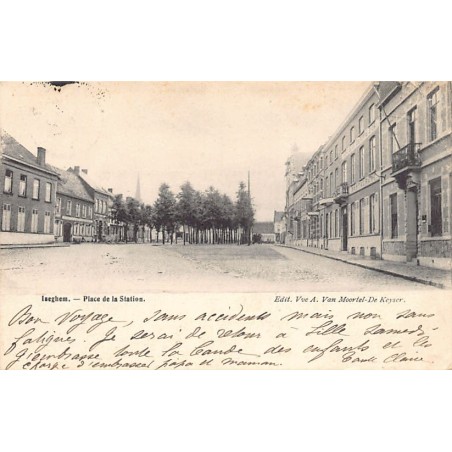 Iseghem. — Place de la Station.
Edit. Vve A. Van Moortel-De Keyser.
Bon voyage, sans accidents mais non sans
fatigues. Je serai de retour à Lille samedi
J'embrasse toute la bande des enfants et les
charge d'embrasser papa et maman. Tante Claire.